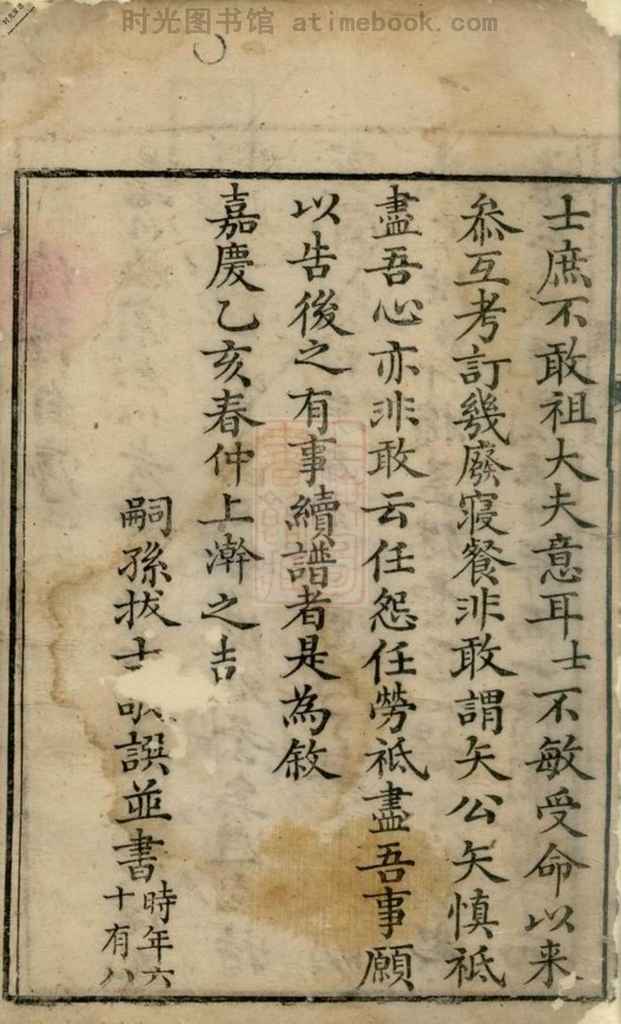 时光图书馆 atimebook.com
士庶不敢祖大夫意耳士不敏受命以来
叅互考訂幾廢寢餐非敢謂矢公矢慎祗
盡吾心亦非敢云任怨任勞祗盡吾事願
以告後之有事續譜者是為敘
嘉慶乙亥春仲上澣之吉
嗣孫拔士 譔並書 時年六
十有八